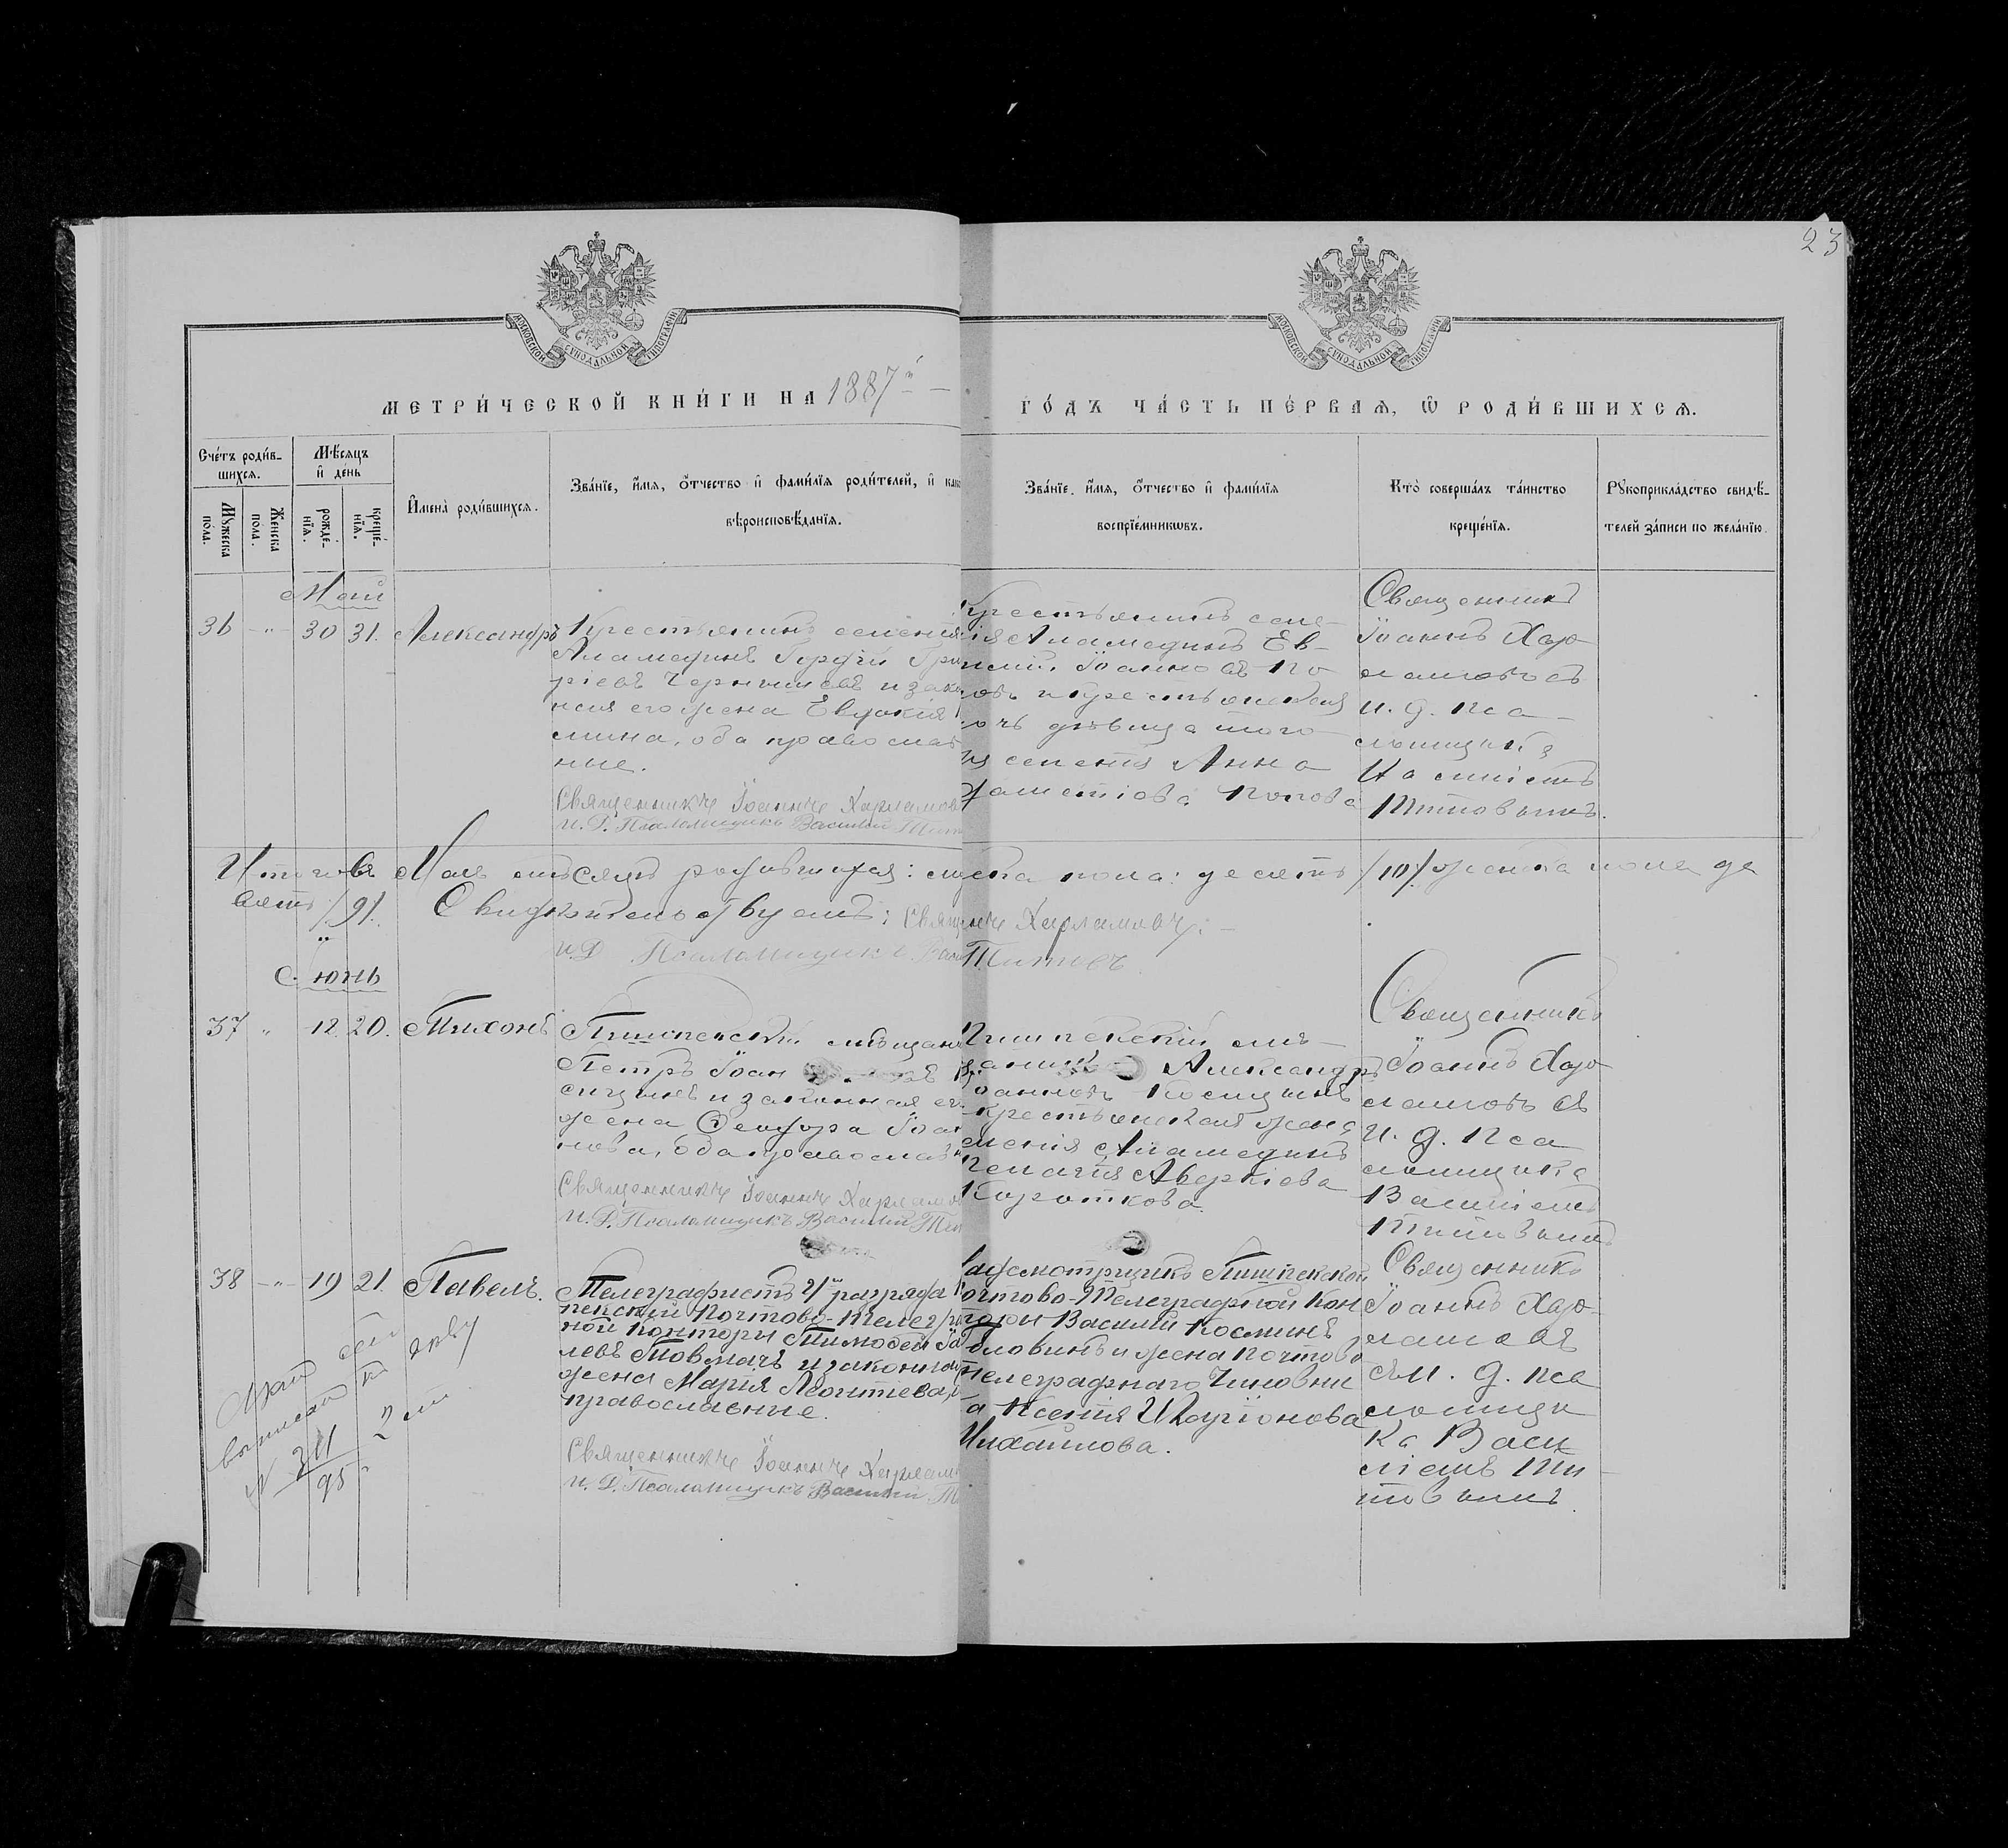 23
МОСКОВСКОЙ СѴНОДАЛЬНОЙ ТИПОГРАФІИ
МОСКОВСКОЙ СѴНОДАЛЬНОЙ ТИПОГРАФІИ
МЕТРИ́ЧЕСКОЙ КНИ́ГИ НА 1887й
ГО́ДЪ ЧА́СТЬ ПЕ́РВАЯ, Ѡ РОДИ́ВШИХСЯ.
Сче́тъ роди́в-
шихся.
Мѣ́сяцъ
и де́нь
Мꙋ́жеска
по́ла.
Же́нска
по́ла.
рожде́-
нїя.
креще́-
нїя.
Имена̀ роди́вшихся.
Зва́нїе, и́мя, о́тчество и фами́лїя роди́телей, и како
вѣроисповѣ́данїя.
Зва́нїе, и́мя, о́тчество и фами́лїя
воспрїе́мниковъ.
Кто̀ соверша́лъ та́инство
креще́нїя.
Рꙋкоприкла́дство свидѣ́-
телей за́писи по жела́нїю.
Май
36 -"- 30 31. Александръ
Крестьянинъ селенія
Аламединъ Гордѣй Гри
ріевъ Чернышевъ и зако
ная его жена Евдокія
мина, оба православ
ные.
Священникъ Іоаннъ Харламов
И. Д. Псаломщикъ Василій Тит
Крестьянинъ селе-
ія Аламединъ Ев-
Іоанновъ По
овъ и крестьянская
очь дѣвица того
селенія Анна
Попова
Священникъ
Іоаннъ Хар-
ламовъ съ
и. д. Пса-
ломщика
Василіемъ
Титовымъ.
Итого въ Маѣ мѣсяцѣ родившихся: мужска пола: десять /10/ женска пола де
вять /9/. Свидѣтельствуемъ: Священникъ Харламовъ:-
И. Д. Псаломщикъ Васи Титовъ
Іюнь
37 " 12 20. Тихонъ
Пишпекскій мѣщани
Петръ Іоан
и законная ег
жена Ѳеодора Іоан
нова, оба православн
Священникъ Іоаннъ Харламов
И. Д. Псаломщикъ Василій Тит
Пишпекскій мѣ-
анинъ Александръ
оанновъ Косицынъ
крестьянская жена
еленія Аламединъ
Пелагія Аверкіева
Короткова.
Священникъ
Іоаннъ Хар
ламовъ съ
И. д. Пса
ломщика
Василіемъ
Титовымъ
38 -"- 19 21. Павелъ.
Телеграфистъ 4го разряда
пекской Почтово-Телегра
ной Конторы Тимофей
левъ Товмачъ и законная
жена Марія Леонтьева,
православные.
Священникъ Іоаннъ Харлам
И. Д. Псаломщикъ Василій Т
адсмотрщикъ Пишпекской
очтово-Телеграфной Кон
торы Василій Косминъ
Головинъ и жена Почтово
Телеграфнаго Чиновни
а Ксенія Иларіонова
Михайлова.
Священникъ
Іоаннъ Хар-
ламовъ
съ И. д. Пса
ломщи
ка Васи
ліемъ Ти-
товымъ.
N 311
95